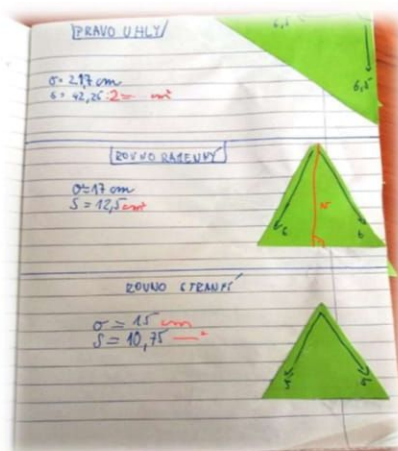 PRAVO UHLÝ
6,5
6,5
σ = 217 cm
S = 42,25 :2 = m²
ROVNO RAMENNÝ
σ = 17 cm
S = 12,5 cm²
5
6
6
ROVNO STRANNÝ
σ = 15 cm
S = 10,75
5
5